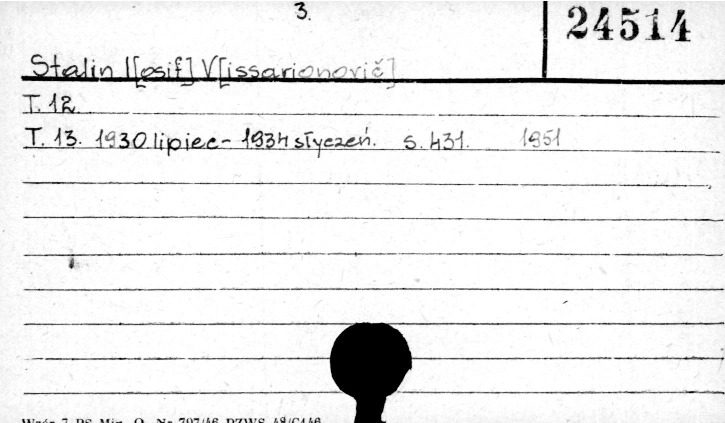 3.
24514
Stalin I[osif] V[issarionovič]
T. 12.
T. 13. 1930 lipiec - 1934 styczeń. s. 431. 1951
Wzór 7 PS Min. O. Nr 797/46 PZWS